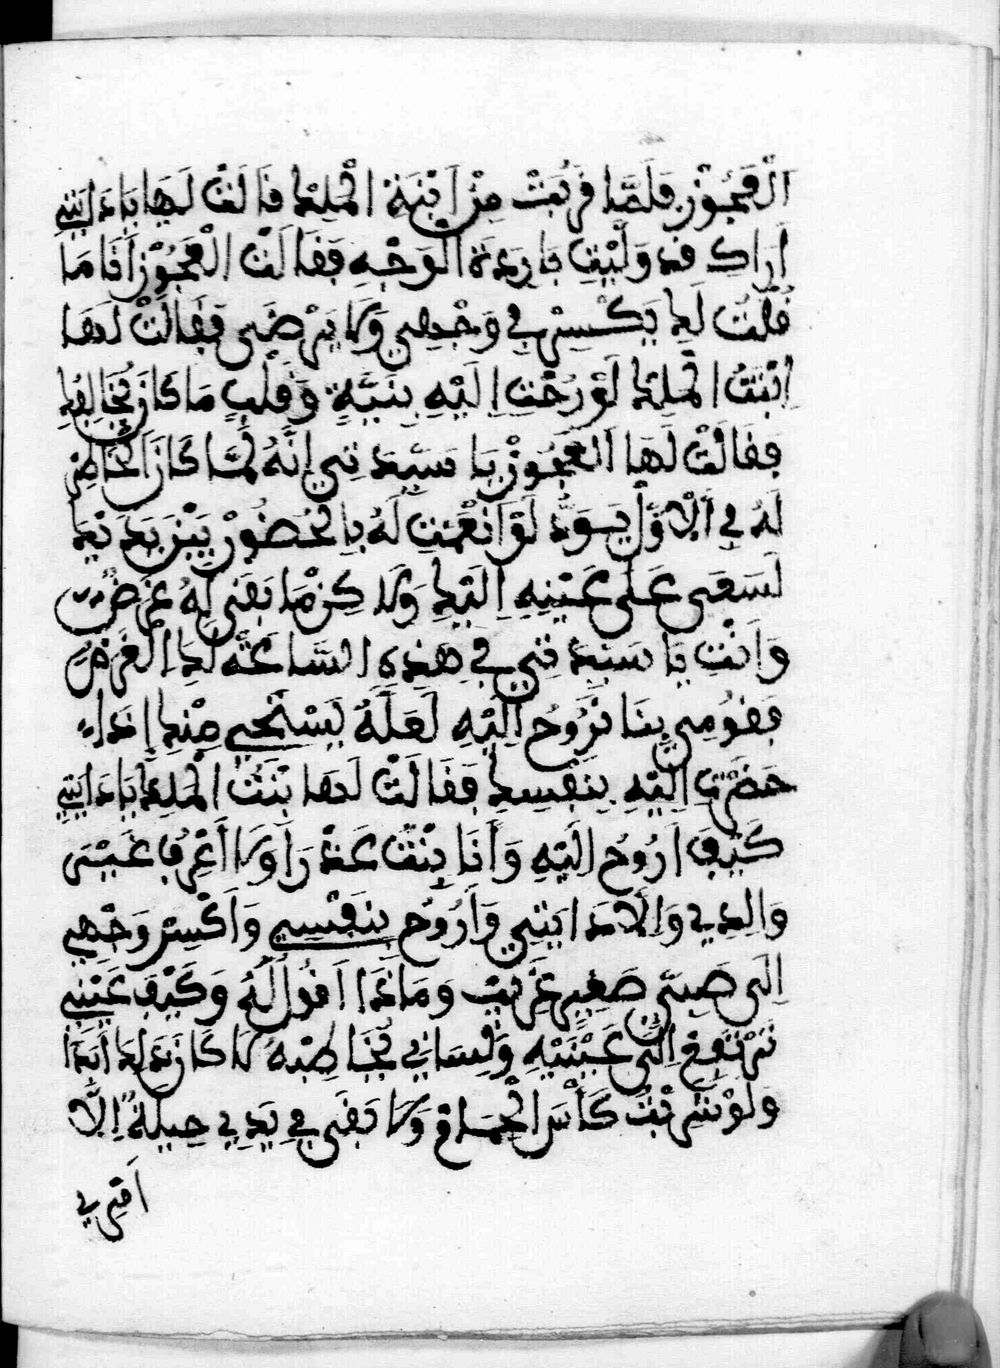 اَلْعَجُوزْ فَلَمَّا قَرُبَتْ مِنْ اَبْنَةِ الْمَلِكْ قَالَتْ لَهَا يَا دَايَتِي
اَرَاكِ قد وَلَّيْتِ بَارِدَةَ الْوَجْهِ فَقَالَتْ الْعَجُوزْ اَنَا مَا
قُلْتُ لَكِ يَكْسِرْ فِي وَجْهِي وَلَا يَرْضَى فَقَالَتْ لَهَا
اِبْنَتُ الْمَلِكْ لَوْ رُحْتِ اِلَيْهِ بِنِيَّةٍ وَقَلْبٍ مَا كَانَ يُخَالِفِك
فَقَالَتْ لَهَا الْعَجُوزْ يَا سَيِّدَتِي اِنَّهُ لَمَّا كَانَ الْخَاطِرْ
لَهُ فِي اَلْاَوَّلْ يَوَدُّ لَوْ اَنْعَمْتِ لَهُ بِالْحُضُورْ بَيْنَ يَدَيْكِ
لَسَعَى عَلَى عَيْنِهِ اِلَيْكِ وَلَاكِنْ مَا بَقَى لَهُ غَرَضٌ
وَاَنْتِ يَا سَيِّدَتِي فِي هَذِهِ السَّاعَةْ لَكِ الْغَرَضُ
فَقُومِي بِنَا نَرُوحُ اِلَيْهِ لَعَلَّهُ يَسْتَحِي مِنْكِ اِذَا
حَضَرْتِ اِلَيْهِ بِنَفْسِكِ فَقَالَتْ لَهَا بِنْتُ الْمَلِكْ يَا دَايَتِي
كَيْفَ اَرُوحُ اِلَيْهِ وَأَنَا بِنْتٌ عَذْرَا وَلَا أَعْرِفُ غَيْرَ
وَالِدِي وَالْاَ دَايَتِي وَأَرُوحُ بِنَفْسِي وَأَكْسِرْ وَجْهِي
اِلَى صَبِيٍّ صَغِيرٍ غَرِيبْ وَمَاذَا اَقُولُ لَهُ وَكَيْفَ عَيْنِي
تَرْتَفِعْ اِلَى عَيْنَيْهِ وَلِسَانِي يُخَاطِبُهُ لَا كَانَ ذَلِكَ أَبَدًا
وَلَوْ شَرِبْتُ كَأْسَ الْحِمَامْ وَلَا بَقَى فِي يَدِي حِيلَةٌ اِلَّا
اَقْرِي